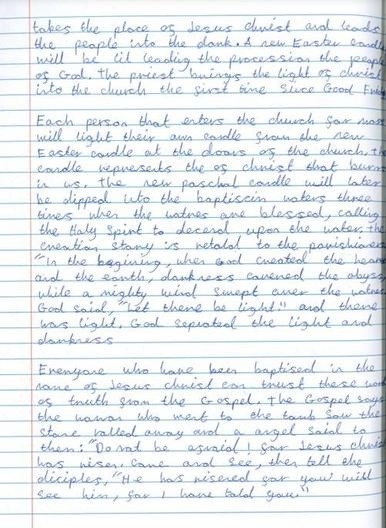 takes the place of Jesus christ and leads
the people into the dark. A new Easter candle
will be lit leading the procession the people
of God. The priest brings the light of christ
into the church the first time since Good Friday
Each person that enters the church for mass
will light their own candle from the new
Easter candle at the doors of the church. the
candle represents the of christ that burns
in us. The new paschal candle will later
be dipped into the baptiscin waters three
times when the watres are blessed, calling
the Holy Spirit to decend upon the water. the
creation story is retold to the parishioners
"In the begining, when God created the heaven
and the earth, darkness cavered the abyss,
while a mighty wind swept over the watres
God said, "Let there be light" and there
was light. God seprated the light and
darkness
Everyone who have been baptised in the
name of Jesus christ can trust these words
of truth from the Gospel. the Gospel says
the woman who went to the tomb saw the
stone rolled away and a angel said to
them: "Do not be afraid! for Jesus christ
has risen. Come and see, then tell the
diciples, "He has risered for you will
see him, for I have told you."